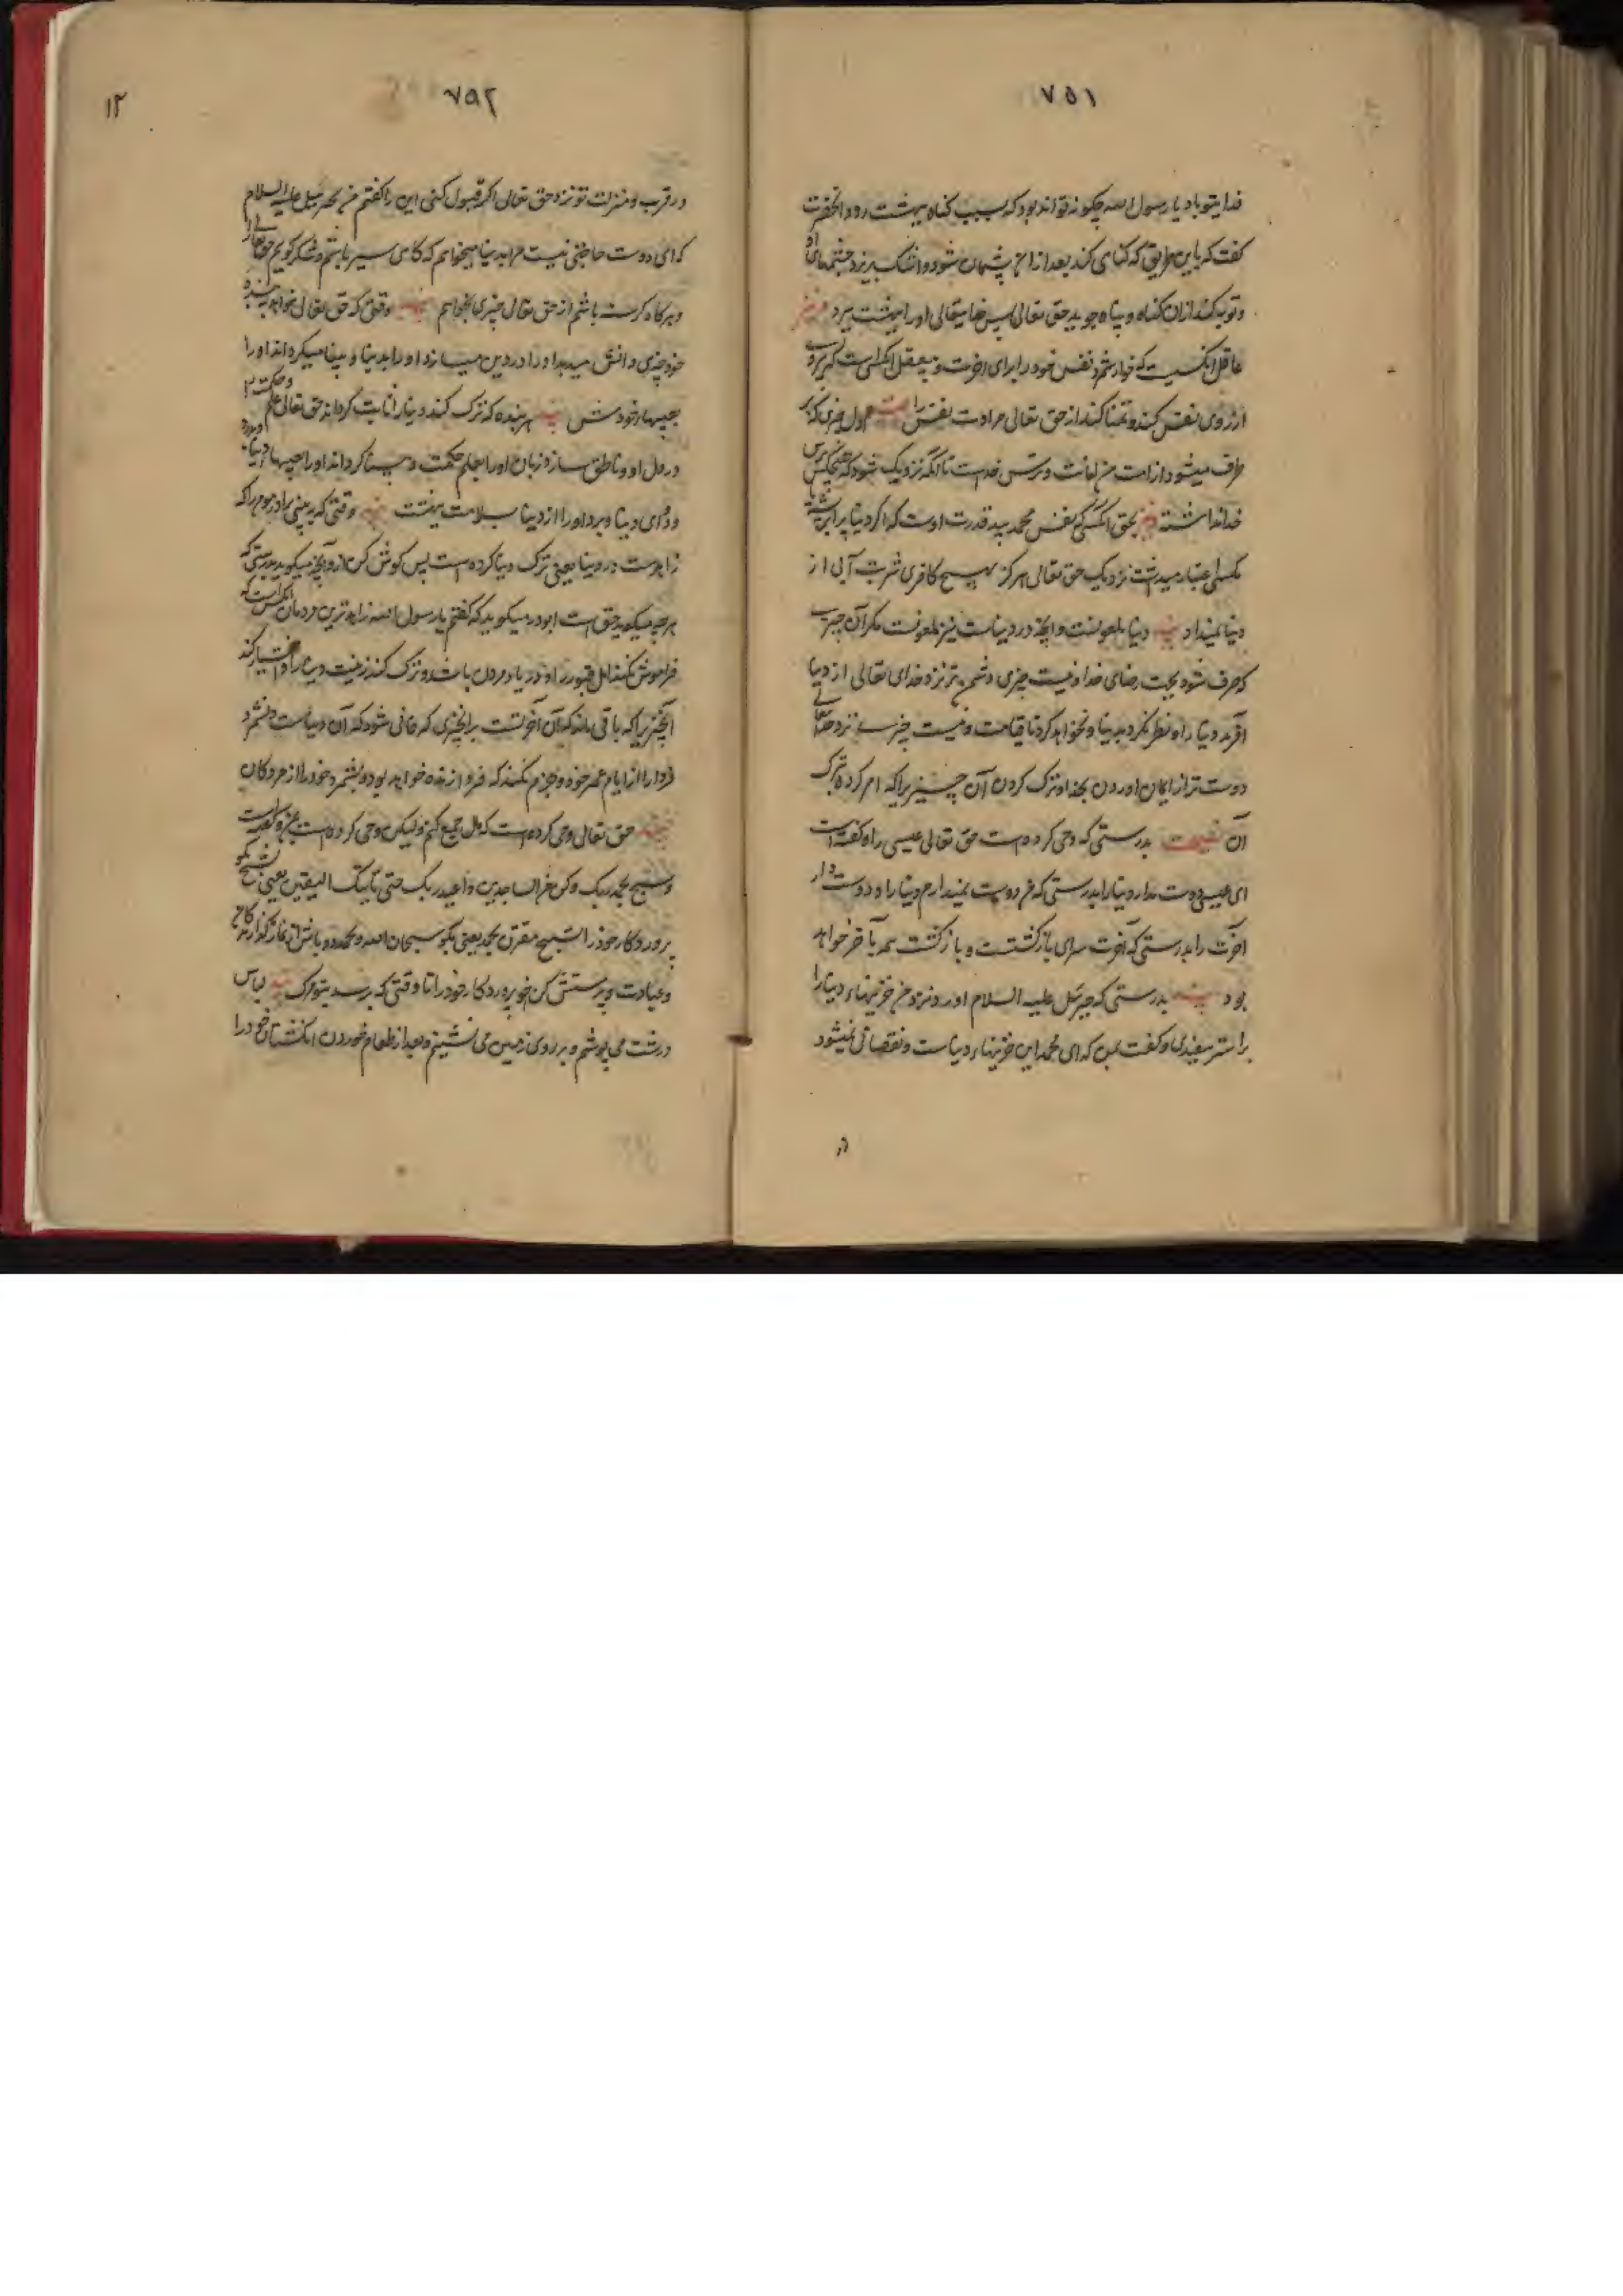 ۷۵۱
فدایتو باد یا رسول الله چکونه تواند بود که بسبب کناه ببهشت رود انحضرت
کفت که باین طریق که کناهی کند بعد از آن پشیمان شود و اشک بریزد چشمهای او
و توبه کند ازان کناه و پناه جوید بحق تعالی پس خدایتعالی اورا ببهشت برد
عاقل انکسیست که خوار شمرد نفس خود را برای اخرت و بیعقل انکسی است که پیروی
ارزوی نفس کند و تمنا کند از حق تعالی مرادت نفس را اول چیزی که بر
طرف میشود از امت من امانت و ترس خداست تا انکه نزدیک شود که هیچکس ترس
خدا نداشته بحق انکسی که نفس محمد بید قدرت اوست که اکر دنیا برابر پشه
مکسی اعتبار میداشت نزدیک حق تعالی هرکز بهیچ کافری شربت آبی از
دنیا نمیداد دنیا ملعونست و انچه در دنیاست نیز ملعونست مکر آن چیزی
که صرف شود بجهت رضای خدا و نیست چیزی دشمن تر نزد خدای تعالی از دنیا
آفرید دنیا را و نظر نکرد بدنیا و نخواهد کرد تا قیامت و نیست چیزی نزد حقتعالی
دوست تر از ایمان اوردن بخدا و ترک کردن آن چیزیرا که امر کرده بترک
آن نصیحت بدرستی که وحی کرده است حق تعالی عیسی را و کفته است
ای عیسی دوست مدار دنیا را بدرستی که من دوست نمیدارم دنیا را و دوست دار
آخرت را بدرستی که آخرت سرای بازکشتست و بازکشت همه بآخر خواهد
بود بدرستی که جبرئیل علیه السلام اورد نزد من خزینهاء دنیا را
بر استر سفیدی و کفت بمن که ای محمد این خزینهاء دنیاست و نقصانی نمیشود
در
۷۵۲
۱۲
در قرب و منزلت تو نزد حق تعالی اکر قبول کنی این را کفتم من بجبرئیل علیه السلام
که ای دوست حاجتی نیست مرا بدنیا میخواهم که کاهی سیر باشم و شکر کویم حقتعالی را
و هرکاه کرسنه باشم از حق تعالی چیزی بخواهم وقتی که حق تعالی خواهد به بنده
خود چیزی دانش میدهد اورا در دین میسازد اورا بدنیا و بینا میکرداند اورا
بعیبهاء خودش هر بنده که ترک کند دنیا را ثابت کرداند حق تعالی علم و حکمت را
در دل او و ناطق سازد زبان اورا بعلم حکمت و بینا کرداند اورا بعیبهاء دنیا و درد
و دوای دنیا و برد اورا از دنیا بسلامت ببهشت وقتی که ببینی برادر مومن را که
زاهد است در دنیا یعنی ترک دنیا کرده است پس کوش کن ازو انچه میکوید بدرستی که
هرچه میکوید حق است ابوذر میکوید که کفتم یا رسول الله زاهد ترین مردمان کیست
فراموش نکند اهل قبور را و در یاد مردن باشد و ترک کند زینت دنیا را و اختیار کند
آنچیزیرا که باقی ماند که آن آخرتست برانچیزی که فانی شود که آن دنیاست و نشمرد
فردا را از ایام عمر خود و جزم نکند که فردا زنده خواهد بود و بشمرد خود را از مردکان
حق تعالی وحی نکرده است که مال جمع کنم ولیکن وحی کرده است بمن و کفته است
و سبح بحمد ربک و کن من الساجدین و اعبد ربک حتی یاتیک الیقین یعنی تسبیح بکو
پروردکار خود را تسبیح مقرون بحمد یعنی بکو سبحان الله و بحمده و باش از نمازکذارندکان
و عبادت و پرستش کن پروردکار خود را تا وقتی که برسد بتو مرک لباس
درشت می پوشم و بر روی زمین می نشینم و بعد از طعام خوردن انکشتان خود را